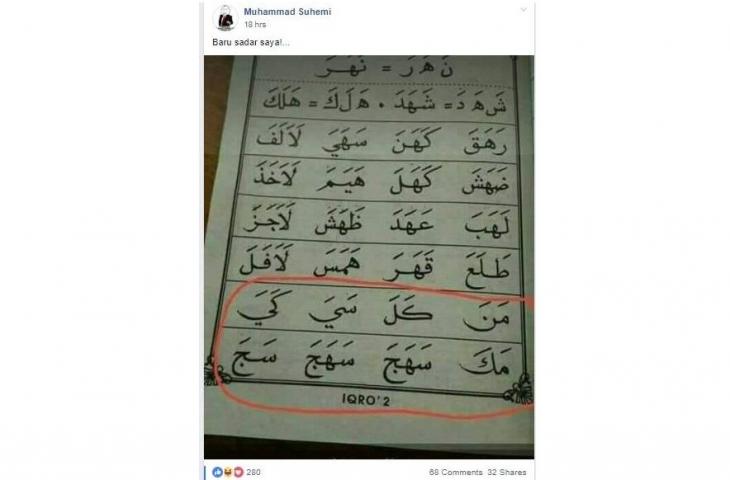 Muhammad Suhemi
18 hrs
Baru sadar saya!...
نَ هَ رَ = نَهَرَ
شَ هَ دَ = شَهَدَ • هَ لَ كَ = هَلَكَ
رَهَقَ كَهَنَ سَهَيَ لَالَفَ
ضَهَشَ كَهَلَ هَيَمَ لَاخَذَ
لَهَبَ عَهَدَ ظَهَشَ لَاجَزَ
طَلَعَ قَهَرَ هَمَسَ لَافَلَ
مَنَ كَلَ سَيَ كَيَ
مَكَ سَهَجَ سَهَجَ سَجَ
IQRO'2
280
68 Comments 32 Shares